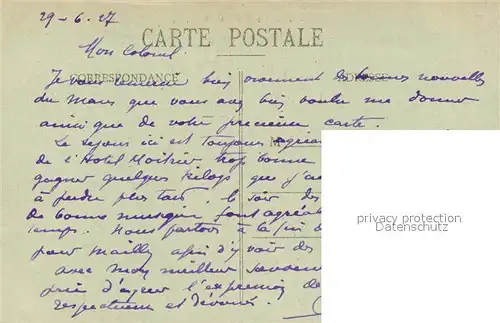 29-6.27
CARTE POSTALE
Mon Colonel.
CORRESPONDANCE ADRESSE
Je vous remercie bien vivement des bonnes nouvelles
du Mans que vous avez bien voulu me donner
ainsi que de votre précieuse carte.
Le séjour ici est toujours
de l'Hotel trop bonne
gagner quelques kilogs que j'au
à perdre plus tard. Le soir des
de bonne musique font agréab
temps. Nous partons à la fin d
pour Mailly afin d'y voir des
avec mon meilleur souvenir
prie d'agréer l'expression de
respectueux et dévoués.
privacy protection
Datenschutz